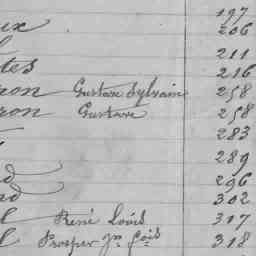 197
ux 206
l 211
tes 216
ron Gustave Sylvain 258
ron Gustave 258
283
289
d 296
nd 302
l René Louis 317
l Prosper Jn Fçois 318